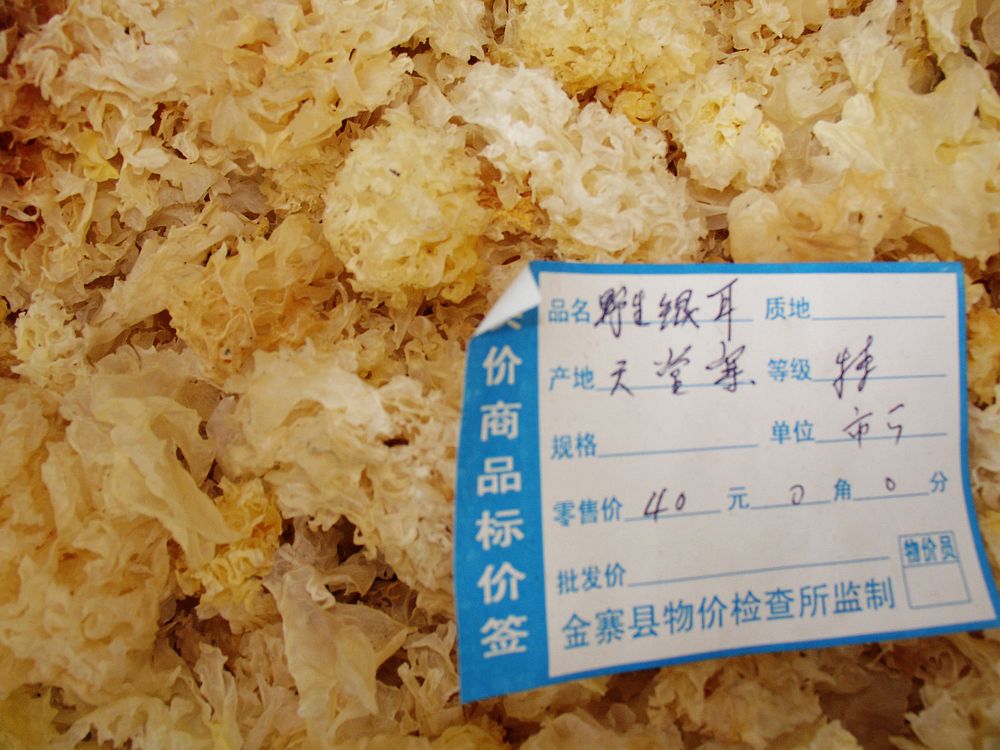 价商品标价签
品名 野生银耳 质地
产地 天堂寨 等级 特
规格 单位 市斤
零售价 40 元 0 角 0 分
批发价
物价员
金寨县物价检查所监制